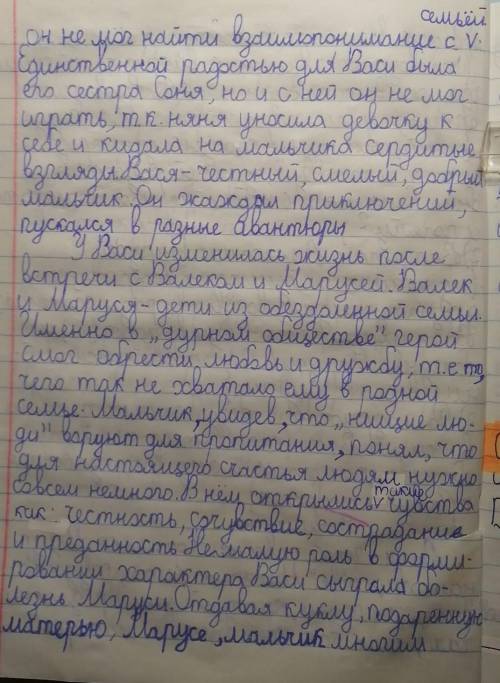 семьёй
он не мог найти взаимопонимание с V.
Единственной радостью для Васи была
его сестра Соня, но и с ней он не мог
играть, т.к. няня уносила девочку к
себе и кидала на мальчика сердитые
взгляды. Вася - честный, смелый, добрый
мальчик. Он жаждал приключений,
пускался в разные авантюры
У Васи изменилась жизнь после
встречи с Валеком и Марусей. Валек
и Маруся - дети из обездоленной семьи.
Именно в „дурном обществе" герой
смог обрести любовь и дружбу, т.е то,
чего так не хватало ему в родной
семье. Мальчик, увидев, что „нищие лю-
ди" воруют для пропитания, понял, что
для настоящего счастья людям нужно
совсем немного. В нём открылись V такие чувства
как: честность, сочувствие, сострадание
и преданность. Не малую роль в форми-
ровании характера Васи сыграла бо-
лезнь Маруси. Отдавая куклу, подаренную
матерью, Марусе, мальчик многим